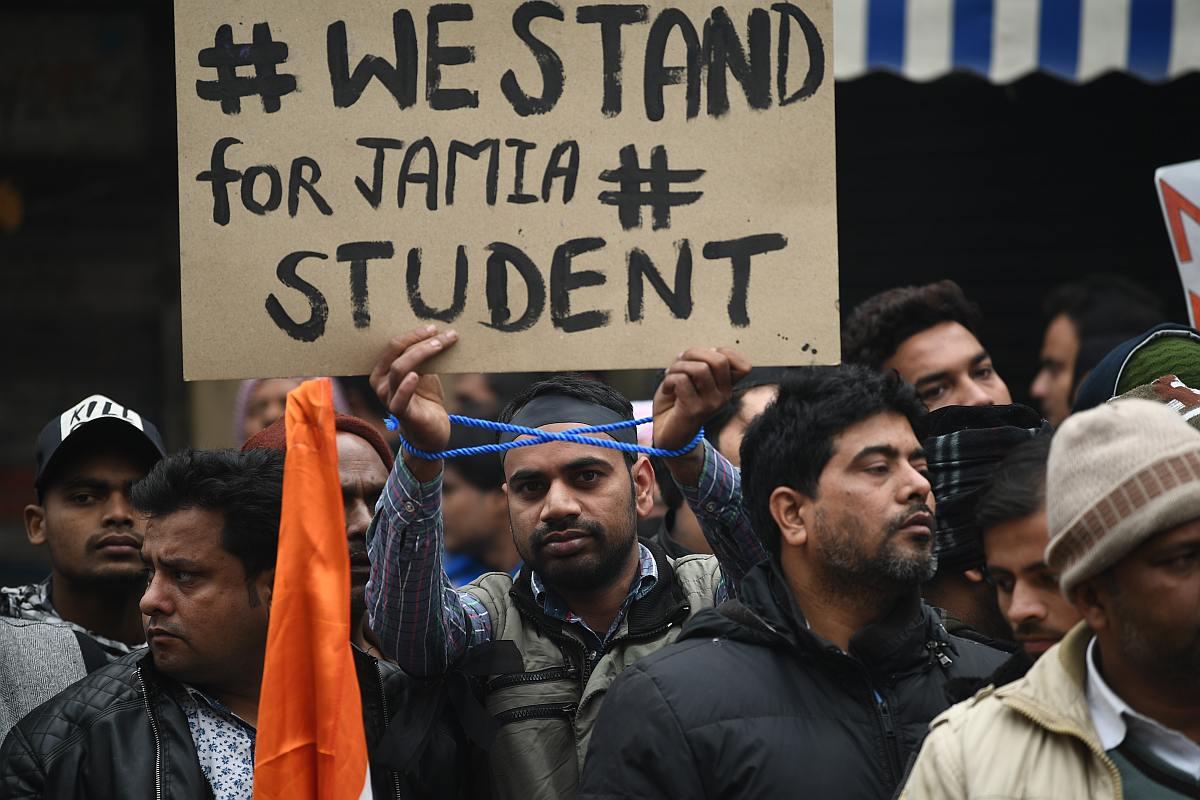 # WE STAND
for JAMIA #
STUDENT
KILL